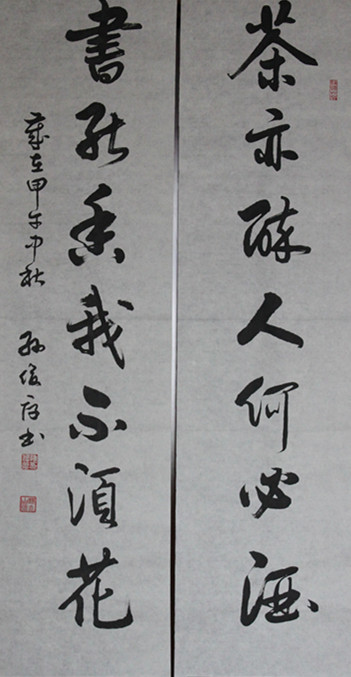 茶亦醉人何必酒
书能香我不须花
岁在甲午中秋 孙俊存书